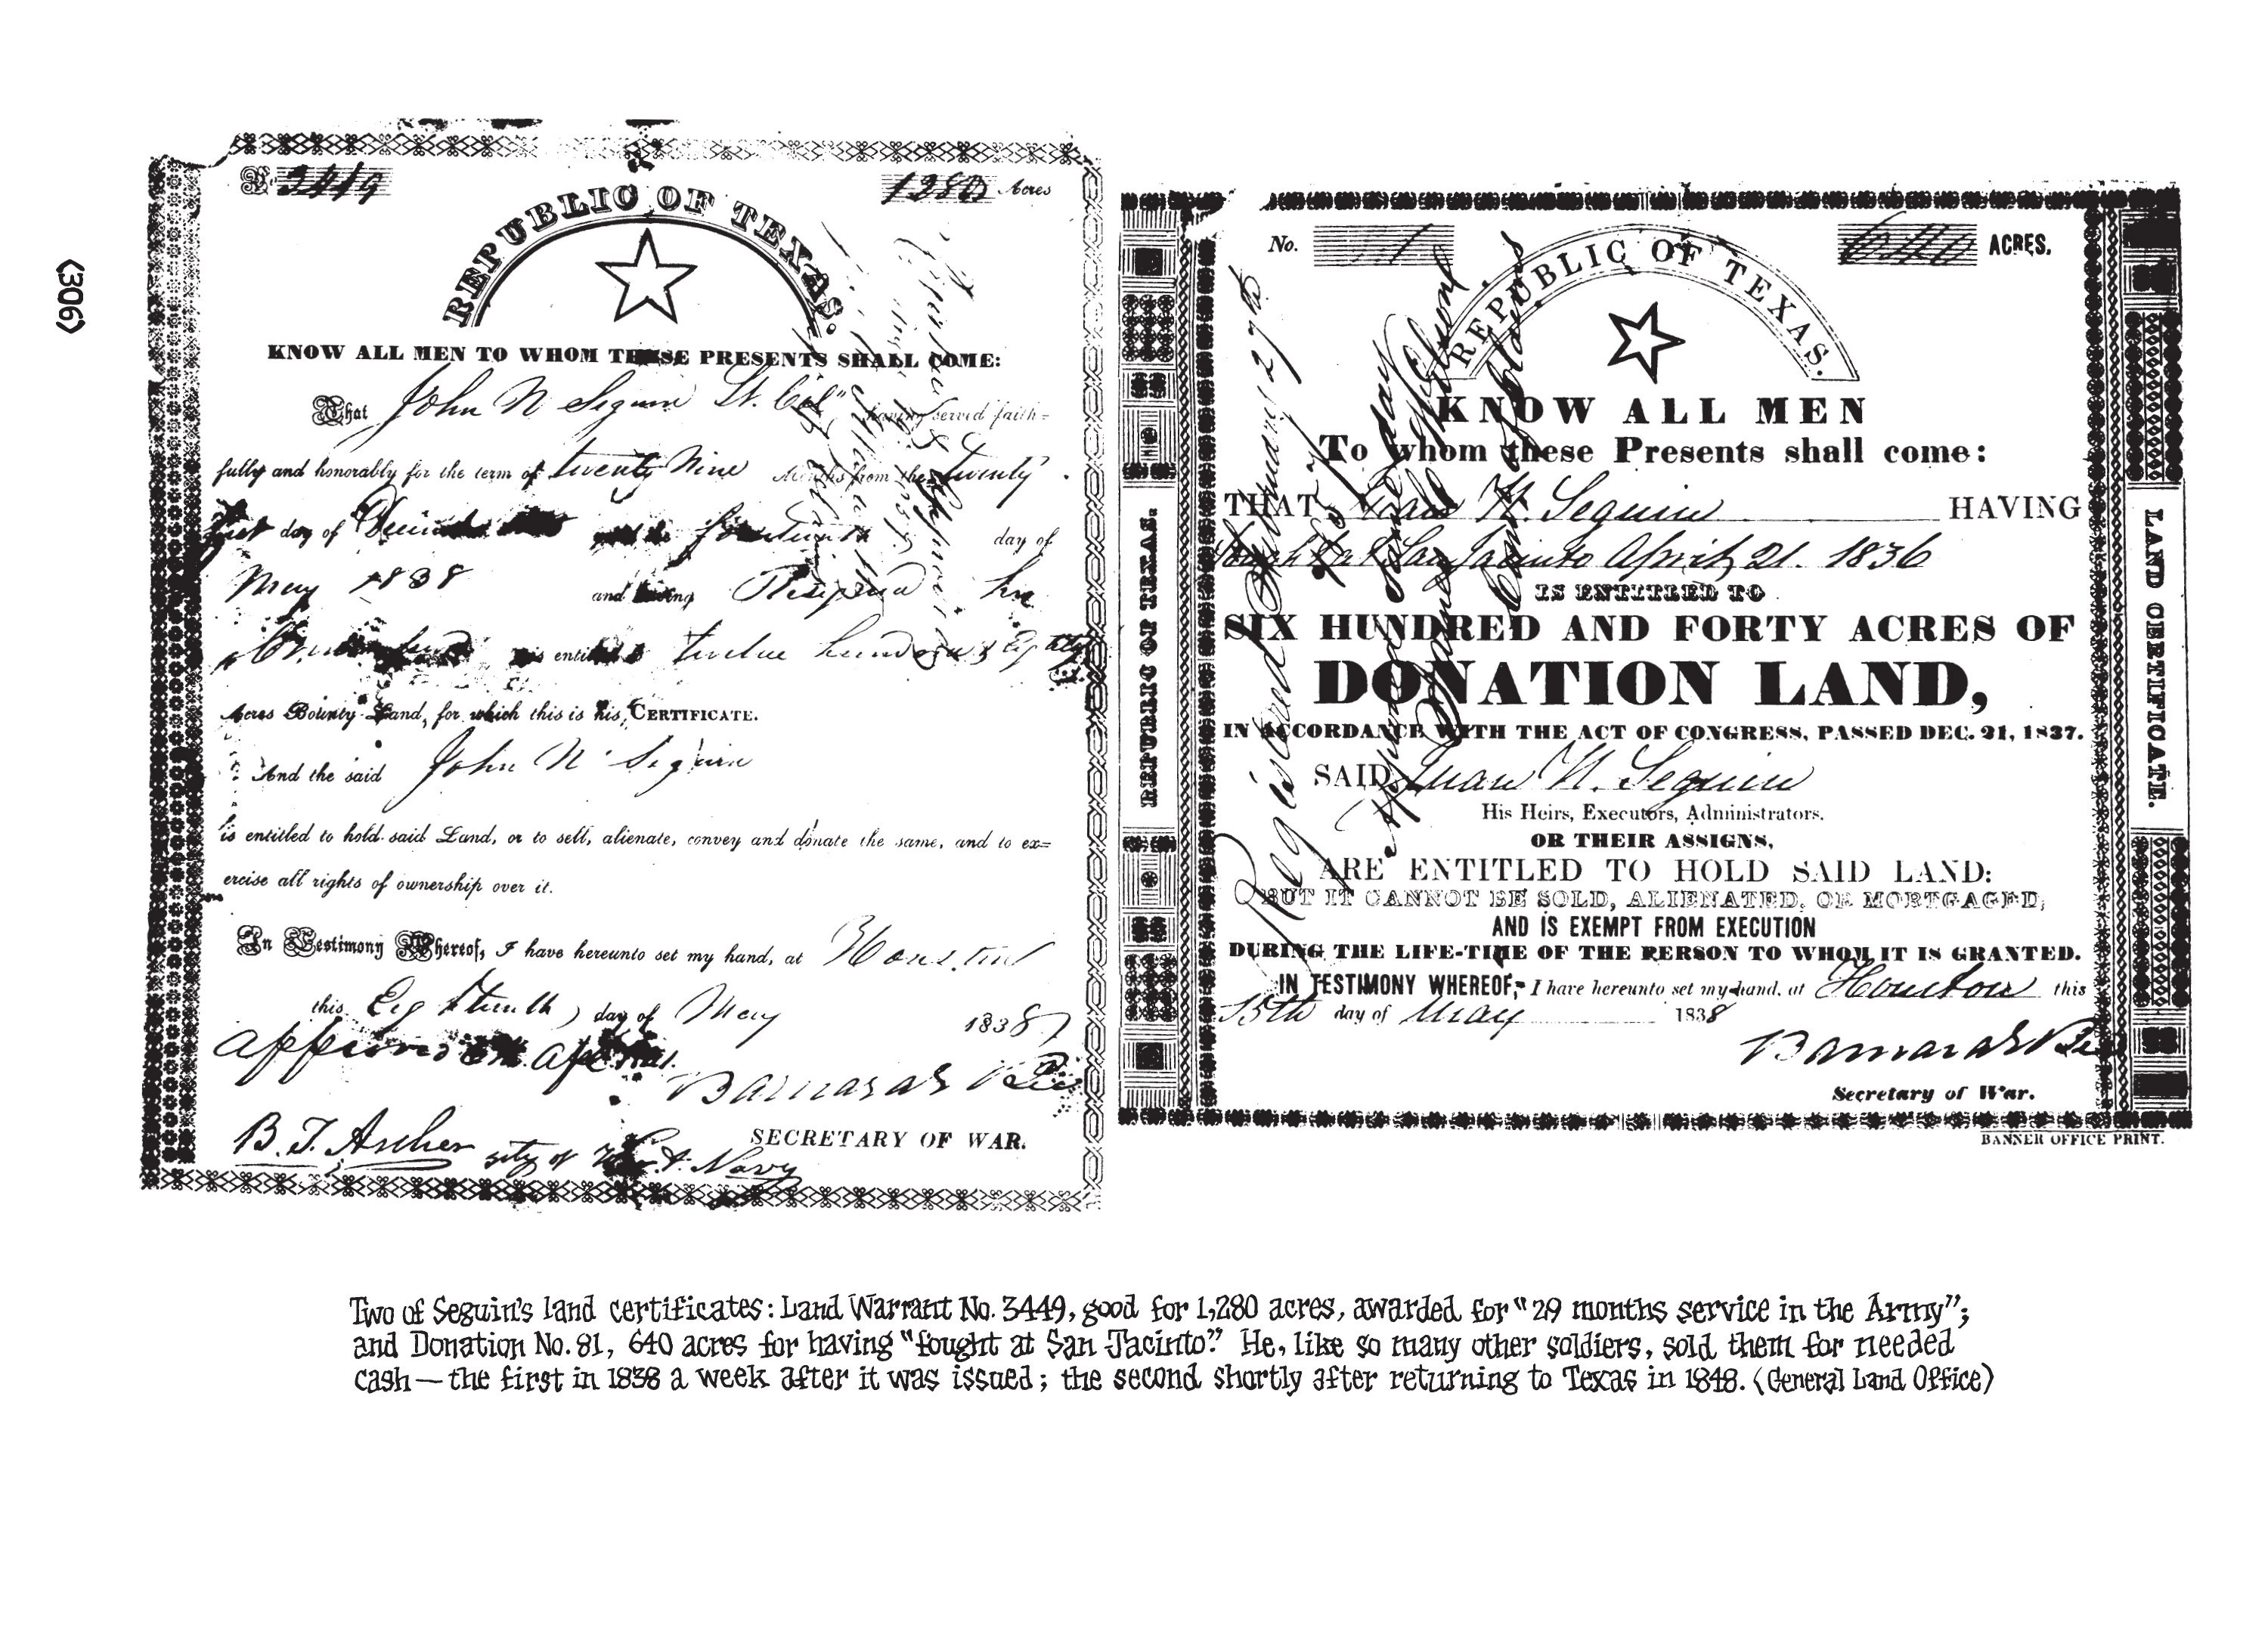 (306)
No. 3449
1280 Acres
REPUBLIC OF TEXAS.
KNOW ALL MEN TO WHOM THESE PRESENTS SHALL COME:
That John N Seguin Lt. Col" having served faith=
fully and honorably for the term of twenty Nine Months from the twenty
first day of and the fourteenth day of
May 1838 and having Resigned his
is entitled to twelve hundred & Eighty
Acres Bounty Land, for which this is his CERTIFICATE.
And the said John N Seguin
is entitled to hold said Land, or to sell, alienate, convey and donate the same, and to ex=
ercise all rights of ownership over it.
In Testimony Whereof, I have hereunto set my hand, at Houston
this Eighteenth day of May 1838
approved
Barnard E Bee
B. T. Archer scty of War & Navy
SECRETARY OF WAR.
REPUBLIC OF TEXAS.
No.
640 ACRES.
REPUBLIC OF TEXAS.
KNOW ALL MEN
To whom these Presents shall come:
THAT Juan N. Seguin HAVING
fought at San Jacinto April 21. 1836
IS ENTITLED TO
SIX HUNDRED AND FORTY ACRES OF
DONATION LAND,
IN ACCORDANCE WITH THE ACT OF CONGRESS, PASSED DEC. 21, 1837.
SAID Juan N. Seguin
His Heirs, Executors, Administrators.
OR THEIR ASSIGNS,
ARE ENTITLED TO HOLD SAID LAND:
BUT IT CANNOT BE SOLD, ALIENATED, OR MORTGAGED;
AND IS EXEMPT FROM EXECUTION
DURING THE LIFE-TIME OF THE PERSON TO WHOM IT IS GRANTED.
IN TESTIMONY WHEREOF, I have hereunto set my hand, at Houston this
15th day of May 1838
Barnard E Bee
Secretary of War.
LAND CERTIFICATE.
BANNER OFFICE PRINT.
Two of Seguin's land certificates: Land Warrant No. 3449, good for 1,280 acres, awarded for "29 months service in the Army";
and Donation No. 81, 640 acres for having "fought at San Jacinto." He, like so many other soldiers, sold them for needed
cash — the first in 1838 a week after it was issued; the second shortly after returning to Texas in 1848. (General Land Office)